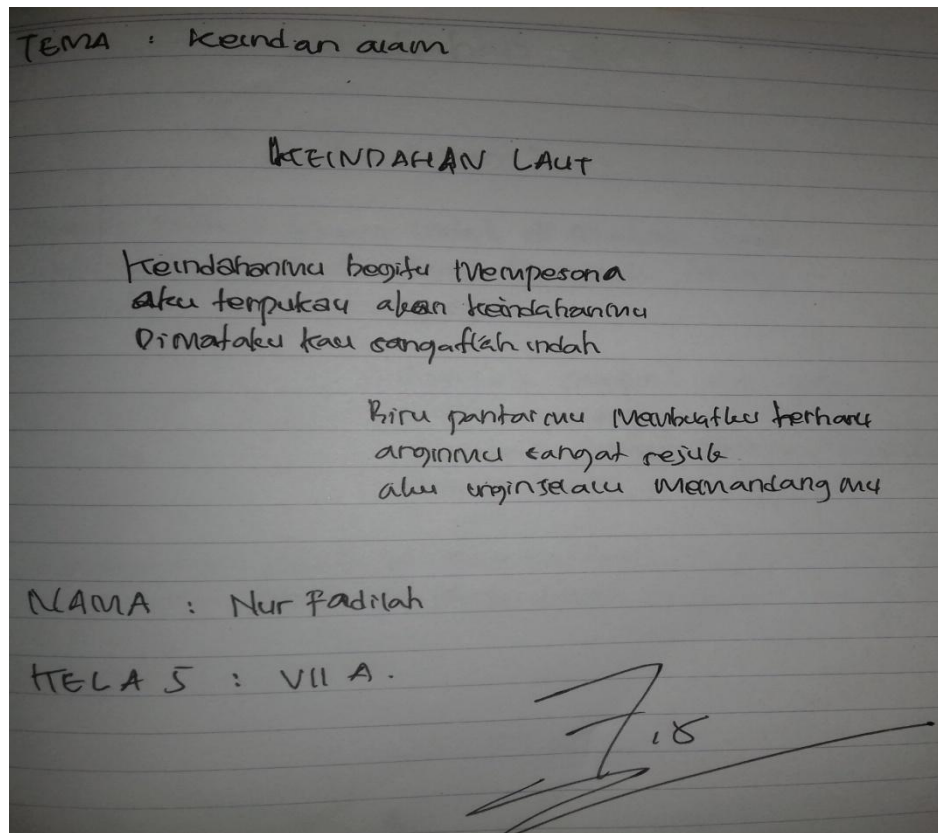 TEMA : Keindan alam
KEINDAHAN LAUT
Keindahanmu begitu Mempesona
aku terpukau akan keindahanmu
Dimataku kau sangatlah indah
Biru pantaimu Membuatku terharu
anginmu sangat sejuk
aku inginselalu Memandangmu
NAMA : Nur Fadilah
KELAS : VII A.